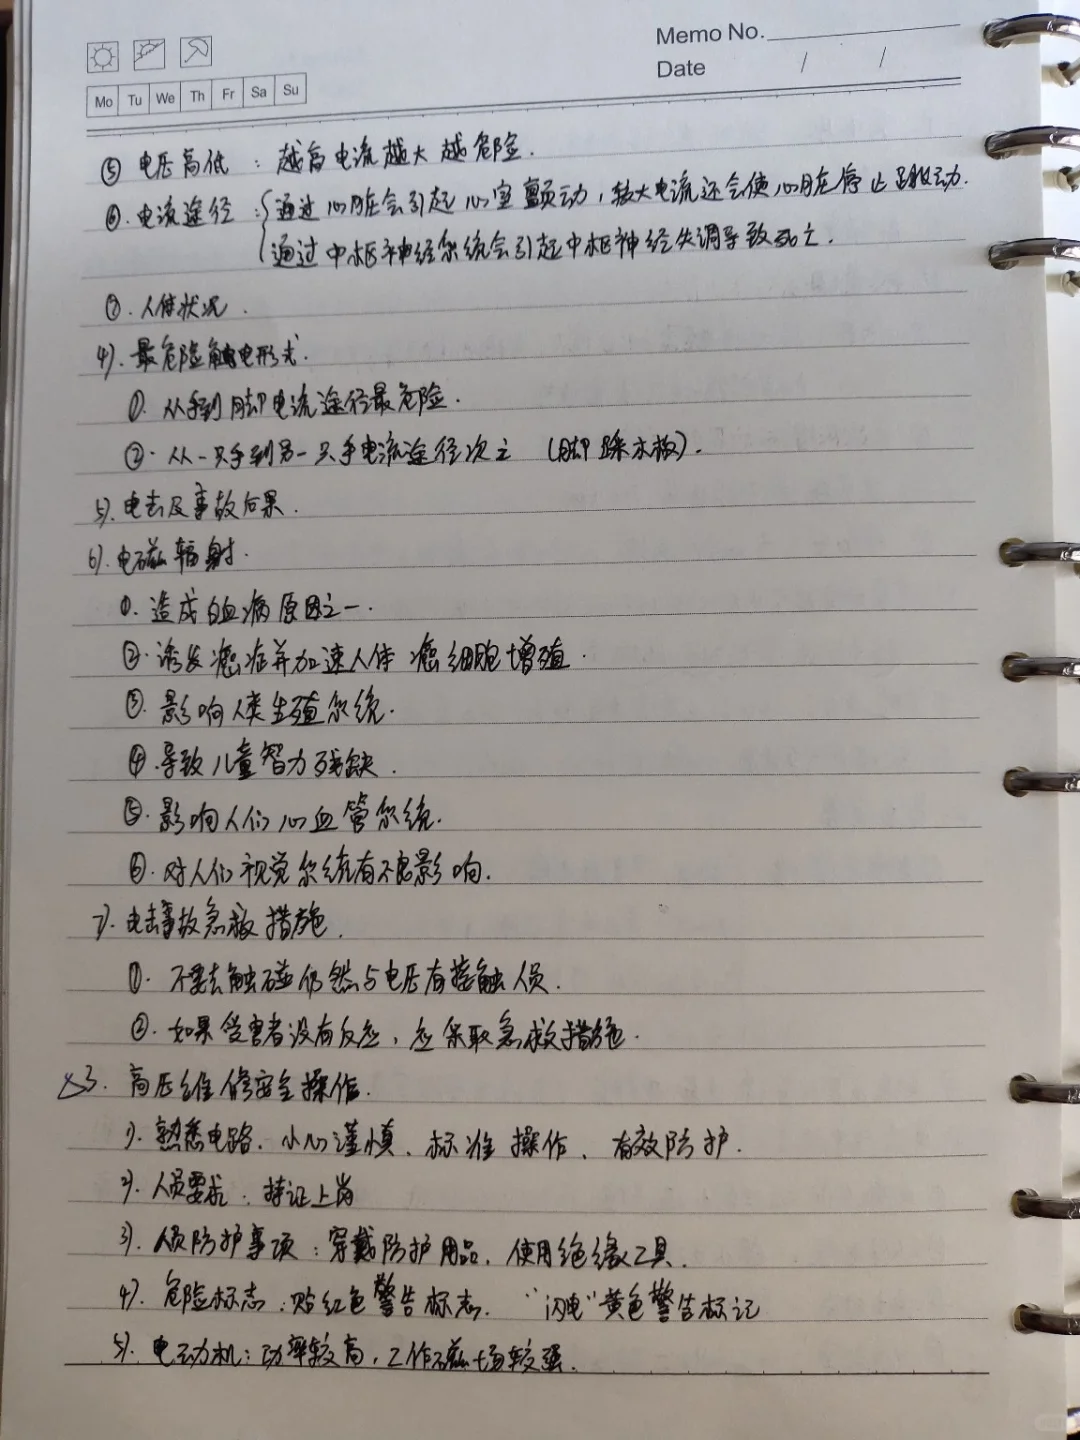 Memo No.
Date / /
Mo Tu We Th Fr Sa Su
⑤ 电压高低：越高电流越大越危险.
⑥. 电流途径：{通过心脏会引起心室颤动，较大电流还会使心脏停止跳动.
通过中枢神经系统会引起中枢神经失调导致死亡.
⑦. 人体状况.
4). 最危险触电形式.
①. 从手到脚电流途径最危险.
②. 从一只手到另一只手电流途径次之 (脚踩木板).
5). 电击及事故后果.
6). 电磁辐射.
①. 造成白血病原因之一.
②. 诱发癌症并加速人体癌细胞增殖.
③. 影响人类生殖系统.
④. 导致儿童智力残缺.
⑤. 影响人们心血管系统.
⑥. 对人们视觉系统有不良影响.
7). 电击事故急救措施.
①. 不要去触碰仍然与电压有接触人员.
②. 如果受害者没有反应，应采取急救措施.
3. 高压维修安全操作.
1). 熟悉电路、小心谨慎、标准操作、有效防护.
2). 人员要求：持证上岗
3). 人员防护事项：穿戴防护用品、使用绝缘工具.
4). 危险标志：贴红色警告标志. “闪电”黄色警告标记
5). 电动机：功率较高，工作磁场较强.